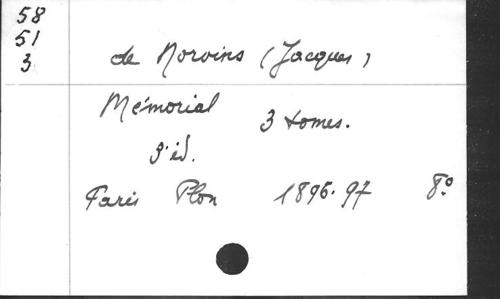 58
51
3
de Norvins (Jacques)
Mémorial 3 tomes.
3'éd.
Paris Plon 1896-97 8º